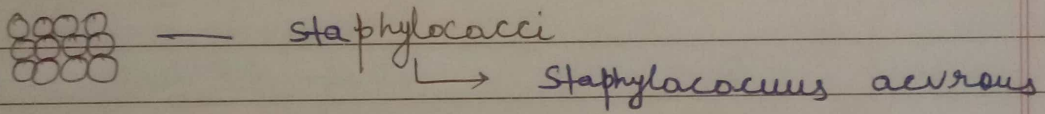 — staphylococci
↳ Staphylacocuus aeurous